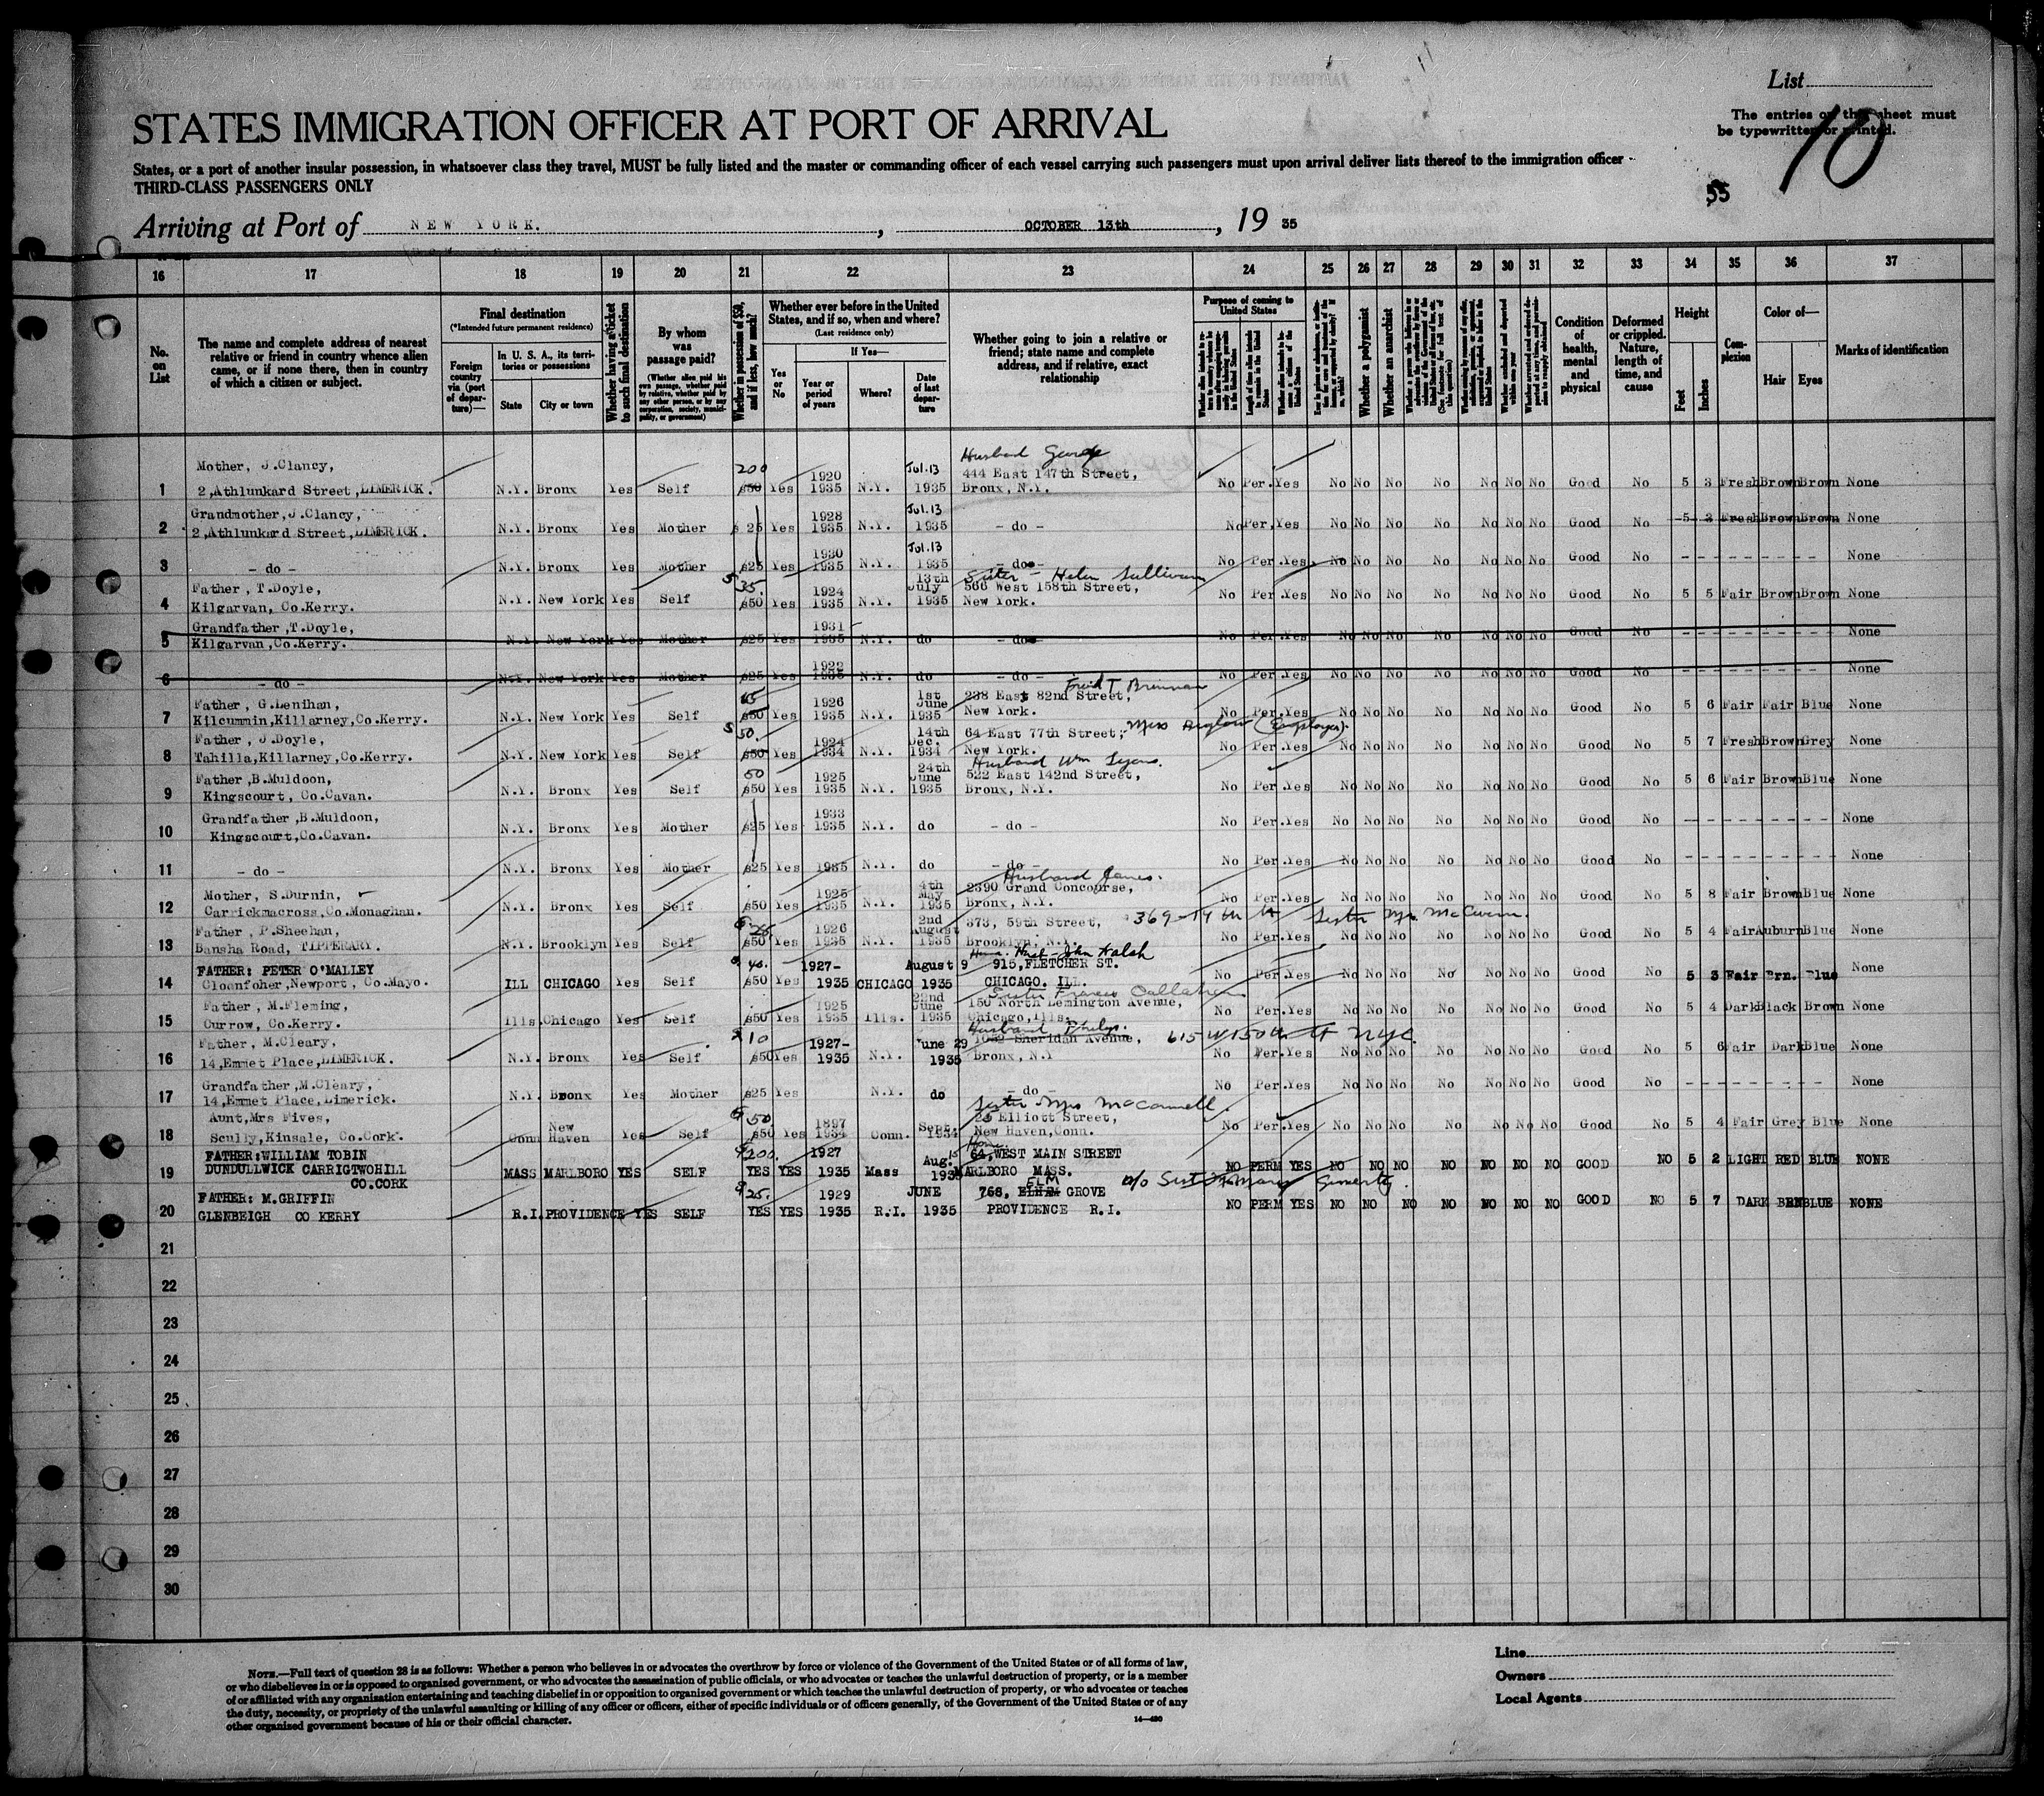 List
The entries on this sheet must
be typewritten or printed.
10
55
STATES IMMIGRATION OFFICER AT PORT OF ARRIVAL
States, or a port of another insular possession, in whatsoever class they travel, MUST be fully listed and the master or commanding officer of each vessel carrying such passengers must upon arrival deliver lists thereof to the immigration officer
THIRD-CLASS PASSENGERS ONLY
Arriving at Port of NEW YORK. , OCTOBER 13th , 19 35
16 17 18 19 20 21 22 23 24 25 26 27 28 29 30 31 32 33 34 35 36 37
No. on List
The name and complete address of nearest relative or friend in country whence alien came, or if none there, then in country of which a citizen or subject.
Final destination
(*Intended future permanent residence)
Foreign country via (port of departure)—
In U. S. A., its territories or possessions
State City or town
Whether having a ticket to such final destination
By whom was passage paid?
(Whether alien paid his own passage, whether paid by relative, whether paid by any other person, or by any corporation, society, municipality, or government)
Whether in possession of $50, and if less, how much?
Whether ever before in the United States, and if so, when and where?
(Last residence only)
Yes or No
If Yes—
Year or period of years
Where?
Date of last departure
Whether going to join a relative or friend; state name and complete address, and if relative, exact relationship
Purpose of coming to United States
Whether a polygamist
Whether an anarchist
Condition of health, mental and physical
Deformed or crippled. Nature, length of time, and cause
Height
Feet Inches
Complexion
Color of—
Hair Eyes
Marks of identification
1 Mother, J.Clancy, 2,Athlunkard Street,LIMERICK. N.Y. Bronx Yes Self 200 $50 Yes 1920 1935 N.Y. Jul.13 1935 Husband George 444 East 147th Street, Bronx, N.Y. No Per. Yes No No No No No No No Good No 5 3 Fresh Brown Brown None
2 Grandmother,J.Clancy, 2,Athlunkard Street,LIMERICK. N.Y. Bronx Yes Mother $ 25 Yes 1928 1935 N.Y. Jul.13 1935 - do - No Per. Yes No No No No No No No Good No 5 3 Fresh Brown Brown None
3 - do - N.Y. Bronx Yes Mother $25 Yes 1930 1935 N.Y. Jul.13 1935 - do - No Per. Yes No No No No No No No Good No - - - - - - - None
4 Father, T.Doyle, Kilgarvan, Co.Kerry. N.Y. New York Yes Self $ 35. $50 Yes 1924 1935 N.Y. 13th July 1935 Sister - Helen Sullivan 566 West 158th Street, New York. No Per. Yes No No No No No No No Good No 5 5 Fair Brown Brown None
5 Grandfather,T.Doyle, Kilgarvan,Co.Kerry. N.Y. New York Yes Mother $25 Yes 1931 1935 N.Y. do - do - No Per. Yes No No No No No No No Good No - - - - - - - None
6 - do - N.Y. New York Yes Mother $25 Yes 1922 1935 N.Y. do - do - No Per. Yes No No No No No No No Good No - - - - - - - None
7 Father, G.Lenihan, Kilcummin,Killarney,Co.Kerry. N.Y. New York Yes Self $50 Yes 1926 1935 N.Y. 1st June 1935 Friend T Brennan 238 East 82nd Street, New York. No Per. Yes No No No No No No No Good No 5 6 Fair Fair Blue None
8 Father, J.Doyle, Tahilla,Killarney,Co.Kerry. N.Y. New York Yes Self $ 50. $50 Yes 1924 1934 N.Y. 14th Dec. 1934 64 East 77th Street, Miss (Employer). New York. No Per. Yes No No No No No No No Good No 5 7 Fresh Brown Grey None
9 Father,B.Muldoon, Kingscourt, Co.Cavan. N.Y. Bronx Yes Self 50 $50 Yes 1925 1935 N.Y. 24th June 1935 Husband Wm Lyons. 522 East 142nd Street, Bronx, N.Y. No Per. Yes No No No No No No No Good No 5 6 Fair Brown Blue None
10 Grandfather,B.Muldoon, Kingscourt,Co.Cavan. N.Y. Bronx Yes Mother $25 Yes 1933 1935 N.Y. do - do - No Per. Yes No No No No No No No Good No - - - - - - - None
11 - do - N.Y. Bronx Yes Mother $25 Yes 1935 N.Y. do - do - No Per. Yes No No No No No No No Good No - - - - - - - None
12 Mother, S.Durnin, Carrickmacross,Co.Monaghan. N.Y. Bronx Yes Self $50 Yes 1925 1935 N.Y. 4th May 1935 Husband James. 2390 Grand Concourse, Bronx, N.Y. No Per. Yes No No No No No No No Good No 5 8 Fair Brown Blue None
13 Father, P.Sheehan, Bansha Road, TIPPERARY. N.Y. Brooklyn Yes Self $ 25 $50 Yes 1926 1935 N.Y. 2nd August 1935 373, 59th Street, Brooklyn, N.Y. 369 - 74 Sister Mrs McGivern. No Per. Yes No No No No No No No Good No 5 4 Fair Auburn Blue None
14 FATHER: PETER O'MALLEY Cloonfoher,Newport, Co.Mayo. ILL CHICAGO Yes Self $ 40. $50 Yes 1927- 1935 CHICAGO August 9 1935 John Walsh 915,FLETCHER ST. CHICAGO. ILL. No Per. Yes No No No No No No No Good No 5 3 Fair Brn. Blue None
15 Father, M.Fleming, Currow, Co.Kerry. Ills. Chicago Yes Self $50 Yes 1925 1935 Ills. 22nd June 1935 Sister Frances Callahan 150 North Lemington Avenue, Chicago,Ills. No Per. Yes No No No No No No No Good No 5 4 Dark Black Brown None
16 Father, M.Cleary, 14,Emmet Place,LIMERICK. N.Y. Bronx Yes Self $ 10 $50 Yes 1927- 1935 N.Y. June 29 1935 Husband 1032 Sheridan Avenue, Bronx, N.Y 615 W 150th St NYC. No Per. Yes No No No No No No No Good No 5 6 Fair Dark Blue None
17 Grandfather,M.Cleary, 14,Emmet Place,Limerick. N.Y. Bronx Yes Mother $25 Yes N.Y. do - do - No Per. Yes No No No No No No No Good No - - - - - - - None
18 Aunt,Mrs Fives, Scully,Kinsale, Co.Cork. Conn New Haven Yes Self $ 50 $50 Yes 1897 1934 Conn. Sept. 1934 Sister Mrs McConnell. 25 Elliott Street, New Haven,Conn. No Per. Yes No No No No No No No Good No 5 4 Fair Grey Blue None
19 FATHER:WILLIAM TOBIN DUNDULLWICK CARRIGTWOHILL CO.CORK MASS MARLBORO YES SELF $200. YES YES 1927 1935 Mass Aug. 15 1935 Home 64,WEST MAIN STREET MARLBORO MASS. NO PERM YES NO NO NO NO NO NO NO GOOD NO 5 2 LIGHT RED BLUE NONE
20 FATHER: M.GRIFFIN GLENBEIGH CO KERRY R.I. PROVIDENCE YES SELF $25. YES YES 1929 1935 R.I. JUNE 1935 768, ELM GROVE PROVIDENCE R.I. NO PERM YES NO NO NO NO NO NO NO GOOD NO 5 7 DARK BRN BLUE NONE
21
22
23
24
25
26
27
28
29
30
NOTE.—Full text of question 28 is as follows: Whether a person who believes in or advocates the overthrow by force or violence of the Government of the United States or of all forms of law,
or who disbelieves in or is opposed to organized government, or who advocates the assassination of public officials, or who advocates or teaches the unlawful destruction of property, or is a member
of or affiliated with any organization entertaining and teaching disbelief in or opposition to organized government or which teaches the unlawful destruction of property, or who advocates or teaches
the duty, necessity, or propriety of the unlawful assaulting or killing of any officer or officers, either of specific individuals or of officers generally, of the Government of the United States or of any
other organized government because of his or their official character.
14—430
Line
Owners
Local Agents